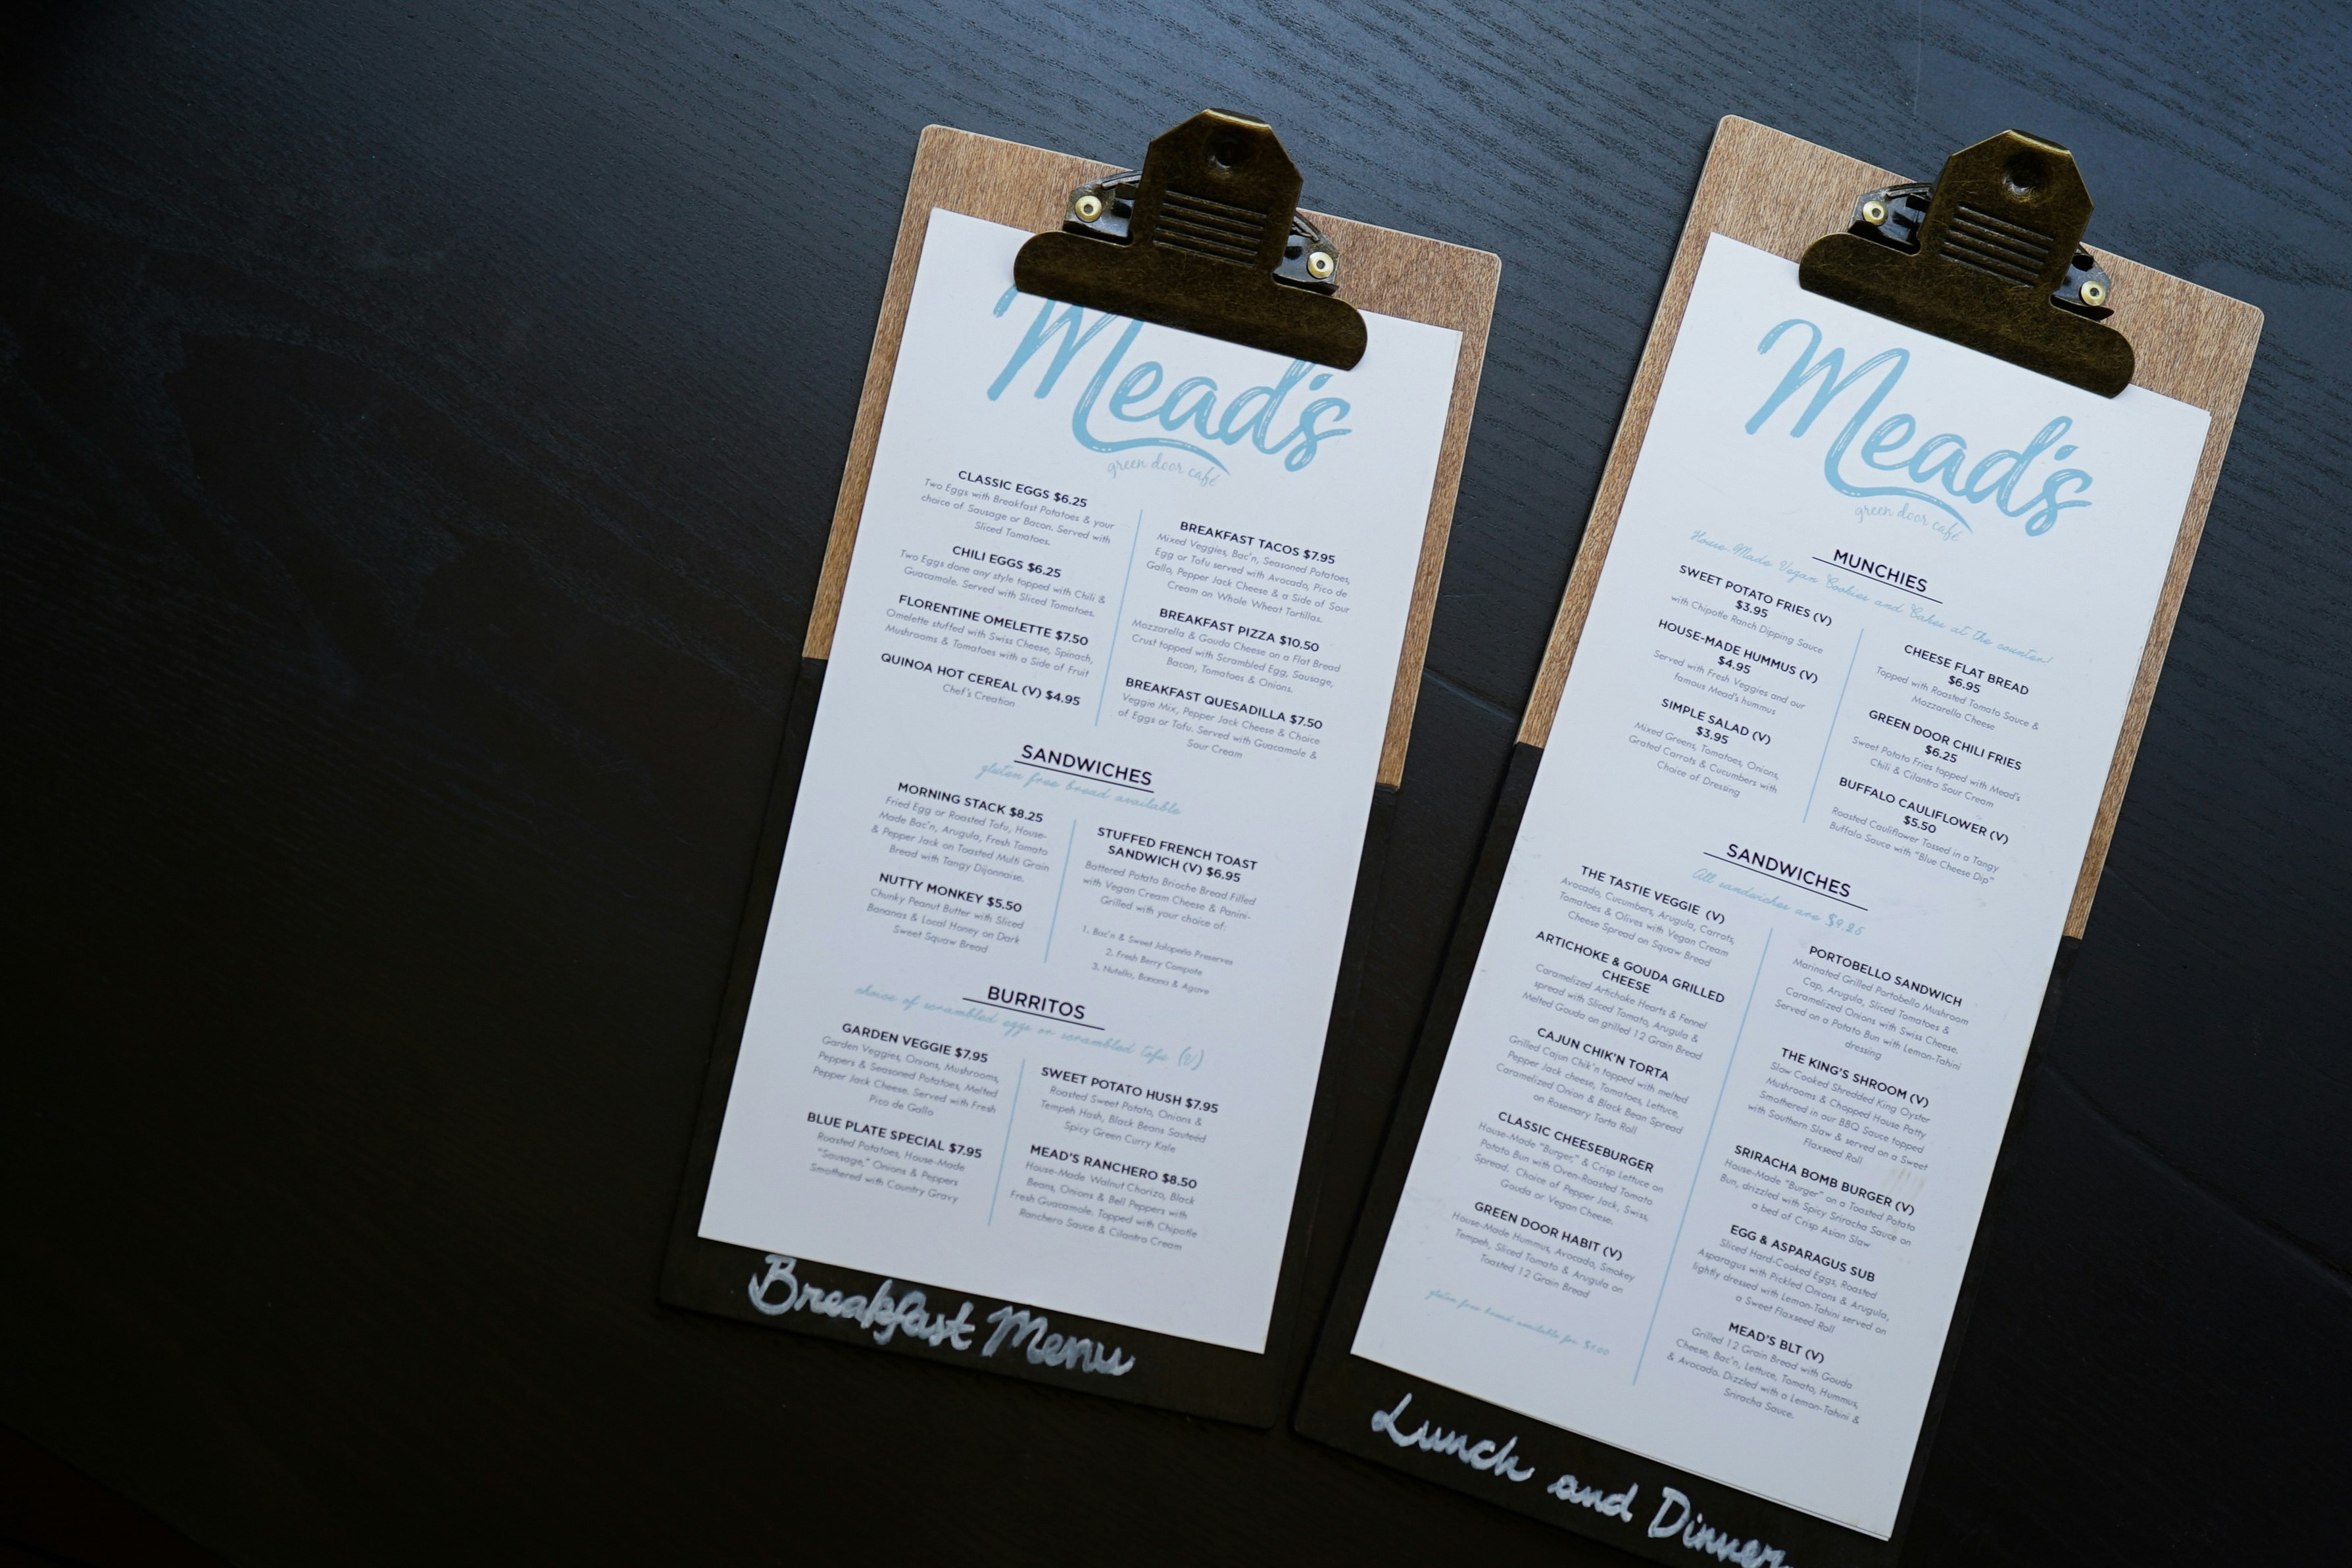 Mead's
green door café
CLASSIC EGGS $6.25
Two Eggs with Breakfast Potatoes & your
choice of Sausage or Bacon. Served with
Sliced Tomatoes.
CHILI EGGS $6.25
Two Eggs done any style topped with Chili &
Guacamole. Served with Sliced Tomatoes.
FLORENTINE OMELETTE $7.50
Omelette stuffed with Swiss Cheese, Spinach,
Mushrooms & Tomatoes with a Side of Fruit
QUINOA HOT CEREAL (V) $4.95
Chef's Creation
BREAKFAST TACOS $7.95
Mixed Veggies, Bac'n, Seasoned Potatoes,
Egg or Tofu served with Avocado, Pico de
Gallo, Pepper Jack Cheese & a Side of Sour
Cream on Whole Wheat Tortillas.
BREAKFAST PIZZA $10.50
Mozzarella & Gouda Cheese on a Flat Bread
Crust topped with Scrambled Egg, Sausage,
Bacon, Tomatoes & Onions.
BREAKFAST QUESADILLA $7.50
Veggie Mix, Pepper Jack Cheese & Choice
of Eggs or Tofu. Served with Guacamole &
Sour Cream
SANDWICHES
gluten free bread available
MORNING STACK $8.25
Fried Egg or Roasted Tofu, House-
Made Bac'n, Arugula, Fresh Tomato
& Pepper Jack on Toasted Multi Grain
Bread with Tangy Dijonnaise.
NUTTY MONKEY $5.50
Chunky Peanut Butter with Sliced
Bananas & Local Honey on Dark
Sweet Squaw Bread
STUFFED FRENCH TOAST
SANDWICH (V) $6.95
Battered Potato Brioche Bread Filled
with Vegan Cream Cheese & Panini-
Grilled with your choice of:
1. Bac'n & Sweet Jalapeño Preserves
2. Fresh Berry Compote
3. Nutella, Banana & Agave
BURRITOS
choice of scrambled eggs or scrambled tofu (V)
GARDEN VEGGIE $7.95
Garden Veggies, Onions, Mushrooms,
Peppers & Seasoned Potatoes, Melted
Pepper Jack Cheese. Served with Fresh
Pico de Gallo
BLUE PLATE SPECIAL $7.95
Roasted Potatoes, House-Made
"Sausage," Onions & Peppers
Smothered with Country Gravy
SWEET POTATO HUSH $7.95
Roasted Sweet Potato, Onions &
Tempeh Hash, Black Beans Sauteéd
Spicy Green Curry Kale
MEAD'S RANCHERO $8.50
House-Made Walnut Chorizo, Black
Beans, Onions & Bell Peppers with
Fresh Guacamole. Topped with Chipotle
Ranchero Sauce & Cilantro Cream
Breakfast Menu
Mead's
green door café
MUNCHIES
House-Made Vegan Cookies and Cakes at the counter!
SWEET POTATO FRIES (V)
$3.95
with Chipotle Ranch Dipping Sauce
HOUSE-MADE HUMMUS (V)
$4.95
Served with Fresh Veggies and our
famous Mead's hummus
SIMPLE SALAD (V)
$3.95
Mixed Greens, Tomatoes, Onions,
Grated Carrots & Cucumbers with
Choice of Dressing
CHEESE FLAT BREAD
$6.95
Topped with Roasted Tomato Sauce &
Mozzarella Cheese
GREEN DOOR CHILI FRIES
$6.25
Sweet Potato Fries topped with Mead's
Chili & Cilantro Sour Cream
BUFFALO CAULIFLOWER (V)
$5.50
Roasted Cauliflower Tossed in a Tangy
Buffalo Sauce with "Blue Cheese Dip"
SANDWICHES
All sandwiches are $9.25
THE TASTIE VEGGIE (V)
Avocado, Cucumbers, Arugula, Carrots,
Tomatoes & Olives with Vegan Cream
Cheese Spread on Squaw Bread
ARTICHOKE & GOUDA GRILLED
CHEESE
Caramelized Artichoke Hearts & Fennel
spread with Sliced Tomato, Arugula &
Melted Gouda on grilled 12 Grain Bread
CAJUN CHIK'N TORTA
Grilled Cajun Chik'n topped with melted
Pepper Jack cheese, Tomatoes, Lettuce,
Caramelized Onion & Black Bean Spread
on Rosemary Torta Roll
CLASSIC CHEESEBURGER
House-Made "Burger," & Crisp Lettuce on
Potato Bun with Oven-Roasted Tomato
Spread. Choice of Pepper Jack, Swiss,
Gouda or Vegan Cheese.
GREEN DOOR HABIT (V)
House-Made Hummus, Avocado, Smokey
Tempeh, Sliced Tomato & Arugula on
Toasted 12 Grain Bread
gluten free bread available for $1.00
PORTOBELLO SANDWICH
Marinated Grilled Portobello Mushroom
Cap, Arugula, Sliced Tomatoes &
Caramelized Onions with Swiss Cheese.
Served on a Potato Bun with Lemon-Tahini
dressing
THE KING'S SHROOM (V)
Slow Cooked Shredded King Oyster
Mushrooms & Chopped House Patty
Smothered in our BBQ Sauce topped
with Southern Slaw & served on a Sweet
Flaxseed Roll
SRIRACHA BOMB BURGER (V)
House-Made "Burger" on a Toasted Potato
Bun, drizzled with Spicy Sriracha Sauce on
a bed of Crisp Asian Slaw
EGG & ASPARAGUS SUB
Sliced Hard-Cooked Eggs, Roasted
Asparagus with Pickled Onions & Arugula,
lightly dressed with Lemon-Tahini served on
a Sweet Flaxseed Roll
MEAD'S BLT (V)
Grilled 12 Grain Bread with Gouda
Cheese, Bac'n, Lettuce, Tomato, Hummus,
& Avocado. Dizzled with a Lemon-Tahini &
Sriracha Sauce.
Lunch and Dinner